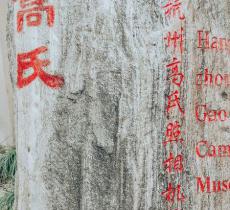 高氏
杭州高氏照相机
Han
zhou
Gao
Cam
Muse